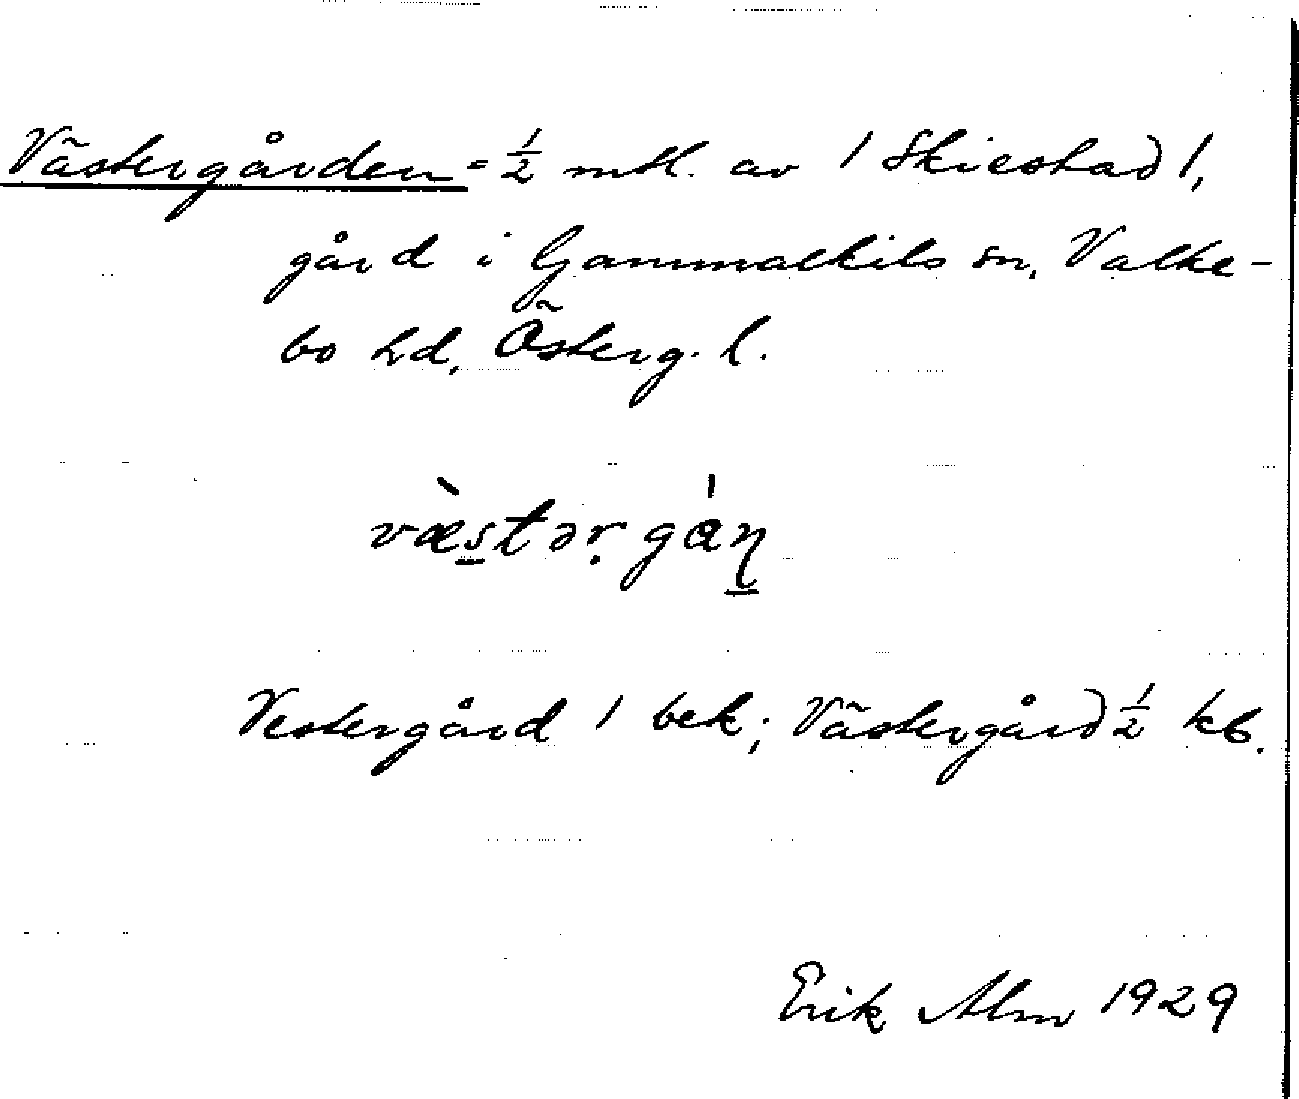 Västergården = ½ mtl. av 1 Skiestad 1,
gård i Gammalkils sn, Valke-
bo hd, Österg. l.
væ̀stər̥ gán̥
Vestergård 1 bek; Västergård ½ kb.
Erik Alm 1929